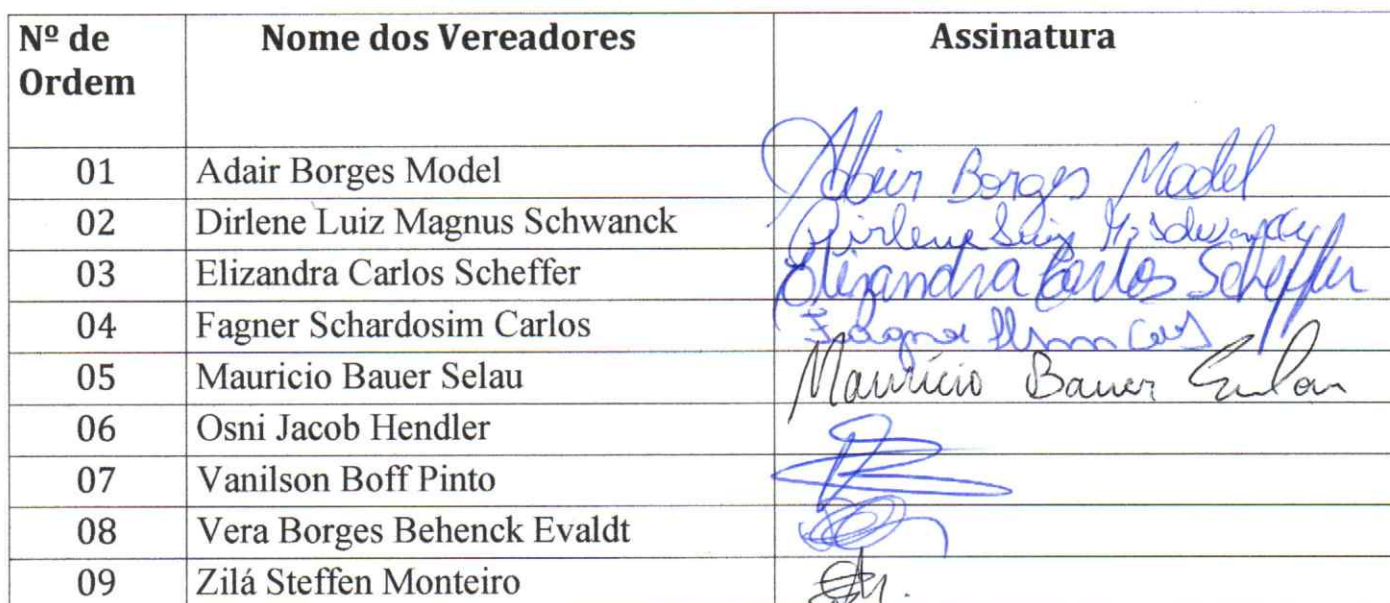 Nº de Ordem Nome dos Vereadores Assinatura
01 Adair Borges Model Adair Borges Model
02 Dirlene Luiz Magnus Schwanck Dirlene Luiz M. Schwanck
03 Elizandra Carlos Scheffer Elizandra Carlos Scheffer
04 Fagner Schardosim Carlos Fagner
05 Mauricio Bauer Selau Maurício Bauer Selau
06 Osni Jacob Hendler
07 Vanilson Boff Pinto
08 Vera Borges Behenck Evaldt
09 Zilá Steffen Monteiro